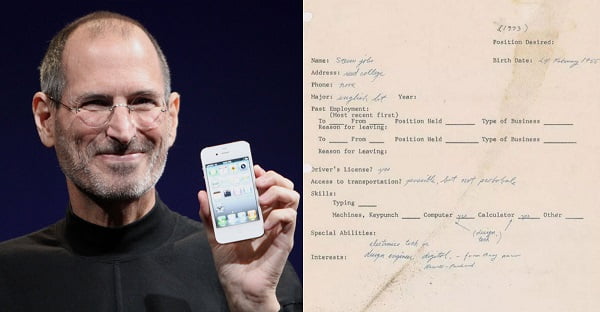 (1973)
Position Desired:
Name: Steven jobs Birth Date: 24 February 1955
Address: reed college
Phone: none
Major: english lit Year:
Past Employment:
(Most recent first)
To ____ From ____ Position Held ______ Type of Business ______
Reason for leaving:
To ____ From ____ Position Held ______ Type of Business ______
Reason for Leaving:
Driver's License? yes
Access to transportation? possible, but not probable
Skills:
Typing ____
Machines, Keypunch ____ Computer yes Calculator yes Other ____
(design, tech)
Special Abilities: electronics tech or
Interests: design engineer. digital. – from Bay near
Hewlett-Packard